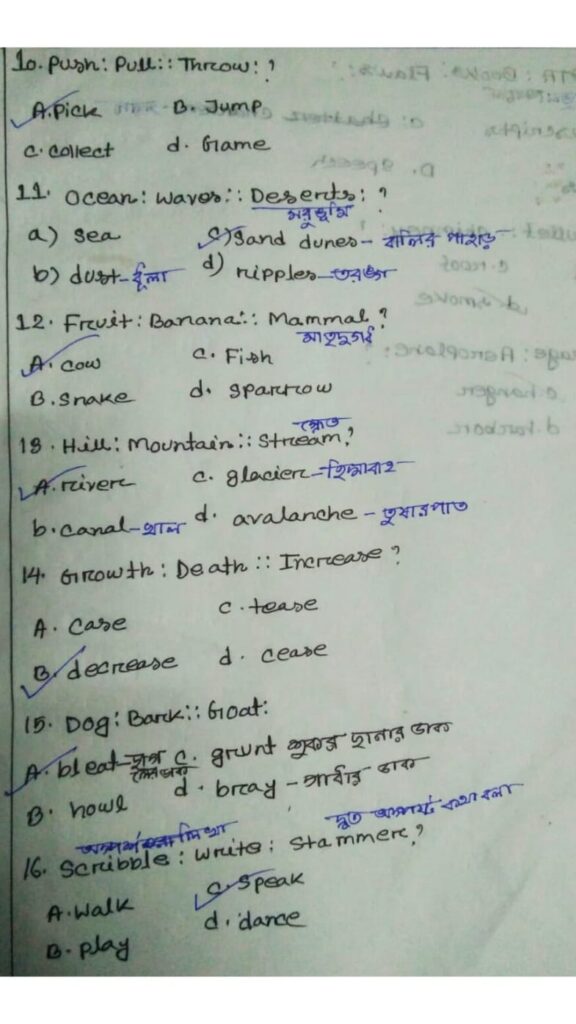 10. Push: Pull:: Throw: ?
A. Pick B. Jump
C. collect d. Game
11. Ocean: Waves:: Deserts: ?
মরুভূমি
a) Sea c) Sand dunes - বালির পাহাড়
b) dust - ধূলা d) ripples - তরঙ্গ
12. Fruit: Banana:: Mammal ?
A. Cow C. Fish
B. Snake d. Sparrow
স্রোত
13. Hill: Mountain:: Stream ?
A. river C. glacier - হিমবাহ
b. canal - খাল d. avalanche - তুষারপাত
14. Growth: Death:: Increase ?
A. Case C. tease
B. decrease d. cease
15. Dog: Bark:: Goat:
A. bleat - C. grunt শুকর ছানার ডাক
B. howl d. bray - গাধার ডাক
দ্রুত অস্পষ্ট কথা বলা
16. Scribble: Write: Stammer ?
A. Walk C. Speak
B. Play d. dance